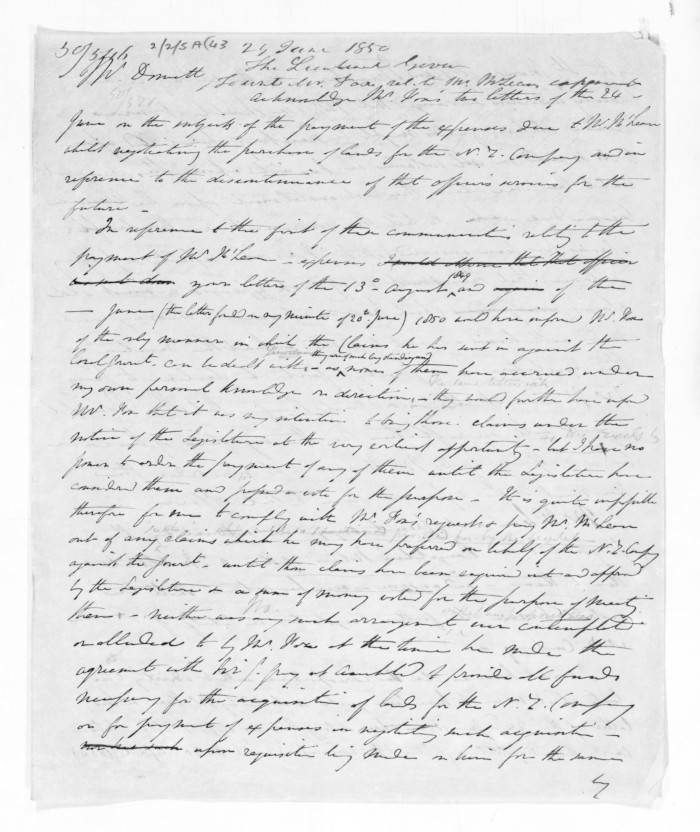 2/2/5A(43 26 June 1850
Mr. Domett
The Lieutenant Govr.
acknowledge Mr. Fox's two letters of the 24
June on the subject of the payment of the expenses due to Mr. McLean
whilst negotiating the purchase of lands for the N.Z. Company and in
reference to the discontinuance of that officers services for the
future -
In reference to the first of these communications relating to the
payment of Mr. McLean expenses I would observe that that officer
your letters of the 13th August 1849 and again of the
June (the letter founded on my minute of 20th June) 1850 will have informed Mr. Fox
of the only manner in which the claims he has sent in against the
Local Govt. can be dealt with, - as none of them have accrued under
my own personal knowledge or direction, - they would further have informed
Mr. Fox that it was my intention to bring those claims under the
notice of the Legislature at the very earliest opportunity - but I have no
power to order the payment of any of them until the Legislature have
considered them and passed a vote for the purpose - It is quite impossible
therefore for me to comply with Mr. Fox's request to pay Mr. McLean
out of any claims which he may have preferred on behalf of the N.Z. Company
against the Govt. - until those claims have been enquired into and approved
by the Legislature & a sum of money voted for the purpose of meeting
them - neither was any such arrangement ever contemplated
or alluded to by Mr. Fox at the time he made the
agreement with Sir G. Grey at to provide all funds
necessary for the acquisition of lands for the N.Z. Company
or for payment of expenses in negotiating such acquisition -
upon requisition being made on him for the same
by